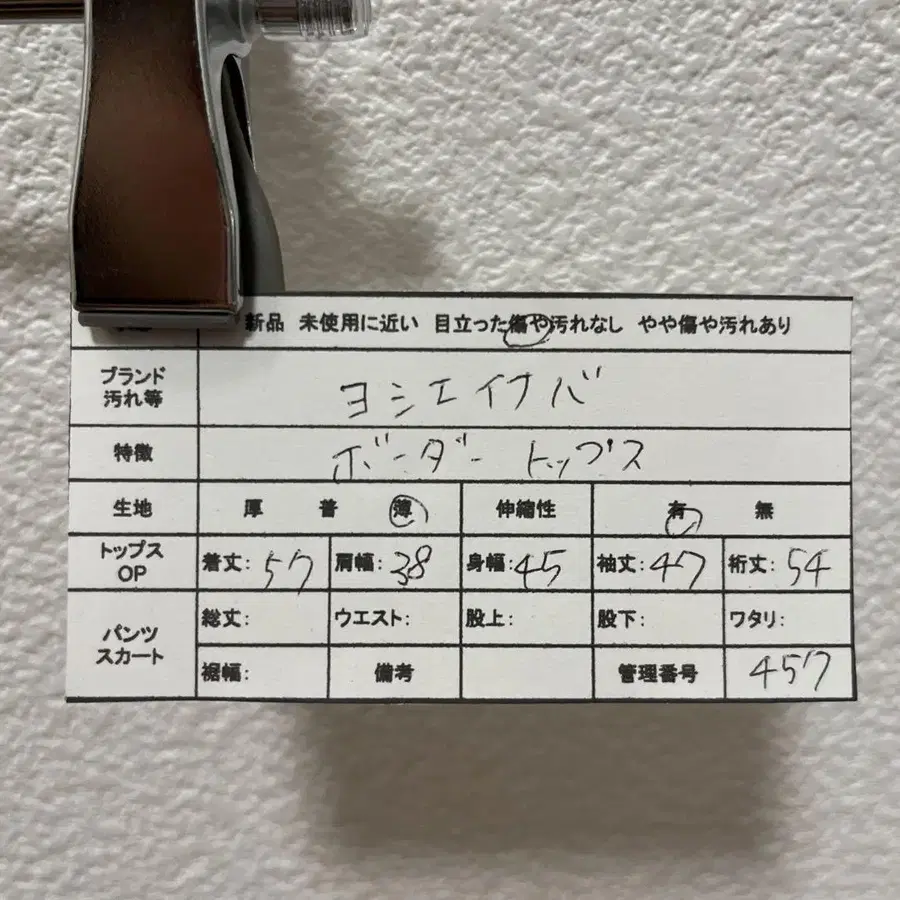 新品 未使用に近い 目立った傷や汚れなし やや傷や汚れあり
ブランド
汚れ等
ヨシエイナバ
特徴
ボーダー トップス
生地 厚 普 薄 伸縮性 有 無
トップス
OP
着丈: 57 肩幅: 38 身幅: 45 袖丈: 47 裄丈: 54
パンツ
スカート
総丈: ウエスト: 股上: 股下: ワタリ:
裾幅: 備考 管理番号 457